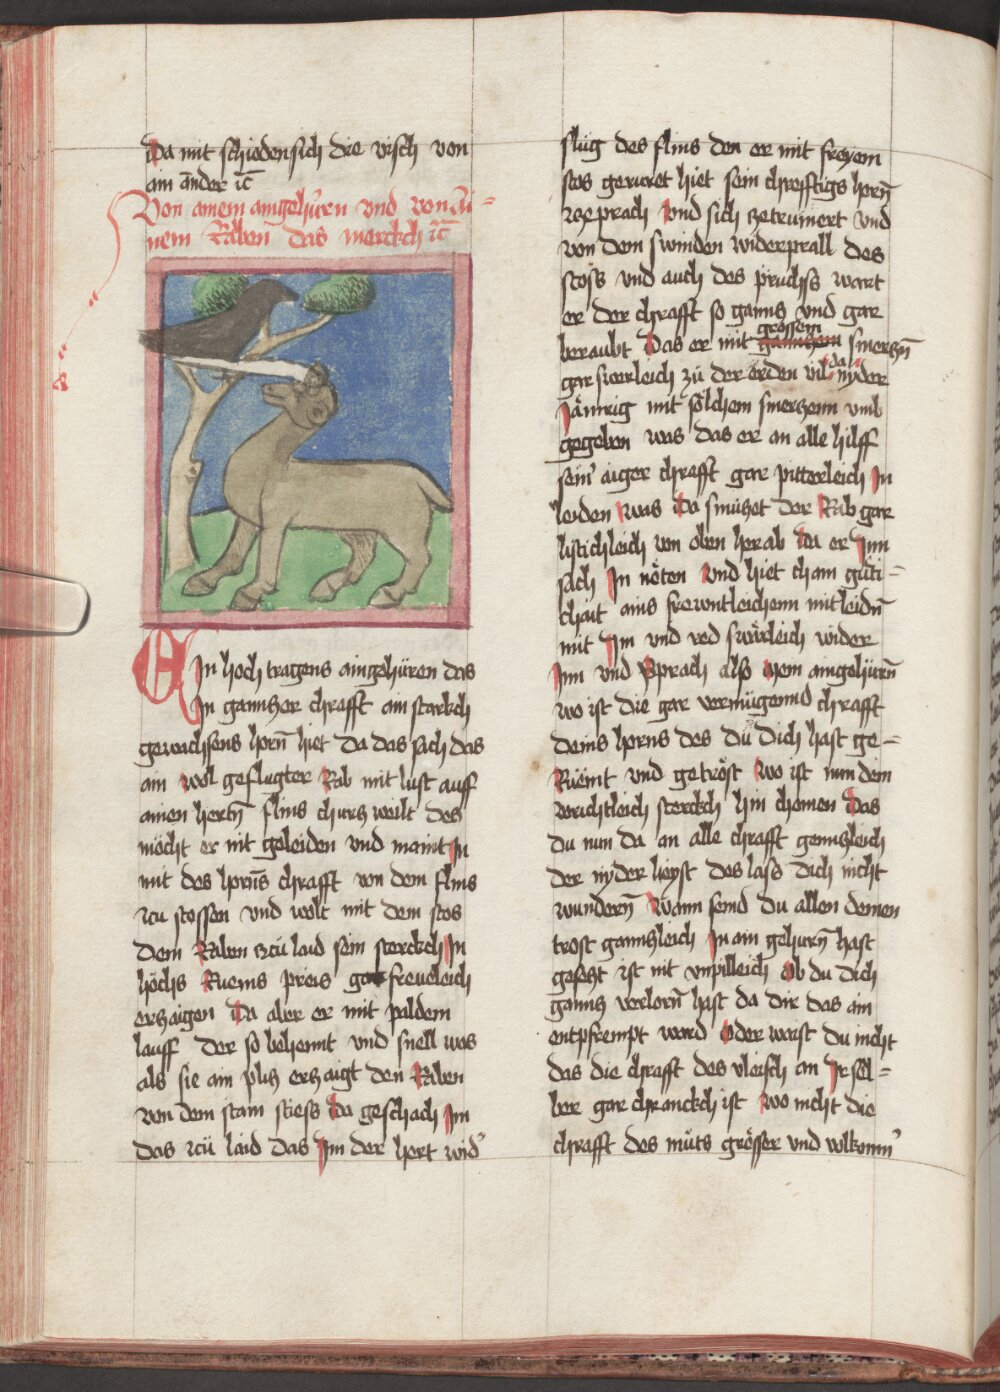 Da mit schieden sich die visch von
ain ander ꝛc̄
Von ainem aingehürn vnd von ai-
nem Raben das merckch ꝛc̄
Ein hoch tragens aingehüren das
In gannczer chrafft ain starckch
gewachsens horn̄ hiet Da das sach das
ain wol geflugter Rab mit lust auff
ainen hertn̄ flins churczweilt des
möcht er nit geleiden vnd maint In
mit des horn̄s chrafft von dem flins
zcu stossen vnd wolt mit dem stos
dem Raben zcü laid sein sterckch In
höchs Ruems preis gar freueleich
erzaigen Da aber er mit paldem
lauff der so behennt vnd snell was
als sie ain plicz erzaigt den Raben
von dem stain stiess Da geschach Im
das zcü laid das Im der hert wid'
slüg des flins den er mit freyem
stos gerueret hiet sein chrefftigs horn̄
zeprach Vnd sich zetrumert vnd
von dem swinden widerprall des
stoss vnd auch des pruchss wart
er der chrafft so ganncz vnd gar
beraubt Das er mit grossem smerczn̄
gar swerleich zü der erden vil da nyder
Jämrig mit sölchem smerczenn vmb
gegeben was das er an alle hilff
sein' aiger chrafft gar pitterleich In
leiden was Da smuczet der Rab gar
listichleich von oben herab Da er Inn
sach In nöten Vnd hiet cham güti-
chait ains frewntleichenn mitleidn̄
mit Im vnd red swärleich wider
Inn vnd Sprach also Mein aingehürn̄
wo ist die gar vermügennd chrafft
deins horns des du dich hast ge-
Rüemt vnd getröst Wo ist nun dein
vorichtleich sterckch hin chomen Das
du nun da an alle chrafft genczleich
der nyder leyst des lass dich nicht
wundern̄ Wann seind du allen deinen
trost ganczleich In ain gehurn̄ hast
geseczt ist nit vnpilleich Ob du dich
ganncz verlorn̄ hast da dir das ain
entpfrempt ward Oder waist du nicht
das die chrafft des vleisch an Ir sel-
ber gar chranckch ist Wo nicht die
chrafft des müts grösser vnd volkomn'